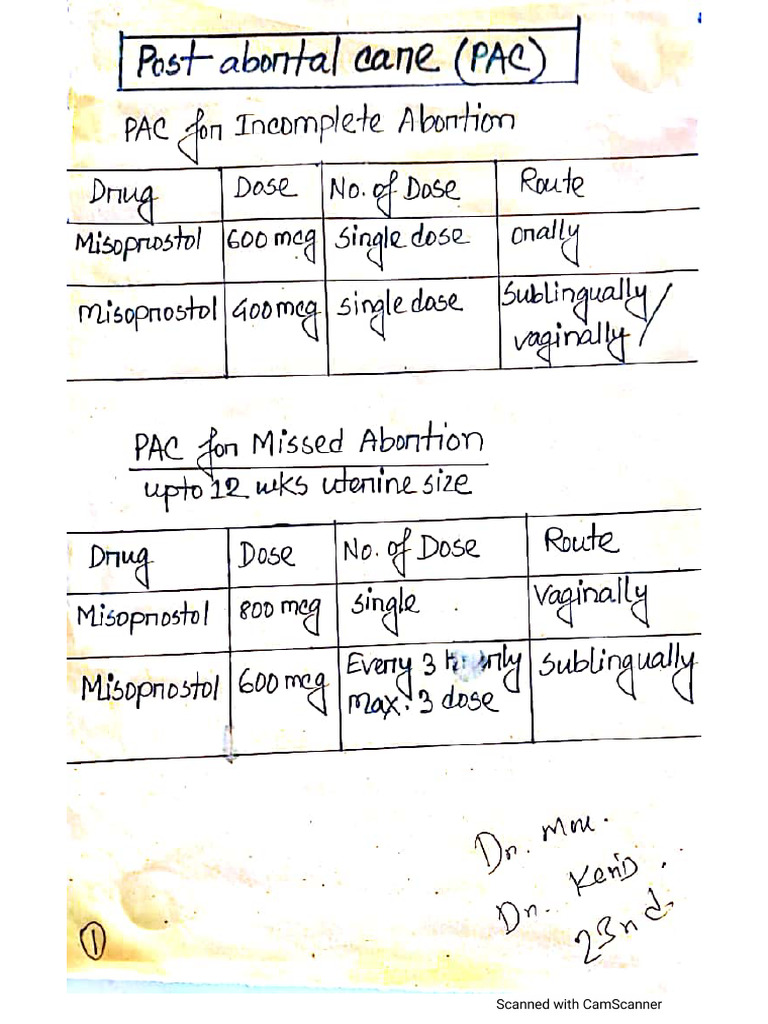 Post abortal care (PAC)
PAC for Incomplete Abortion
Drug Dose No. of Dose Route
Misoprostol 600 mcg single dose orally
Misoprostol 400 mcg single dose Sublingually/
vaginally/
PAC for Missed Abortion
upto 12 wks uterine size
Drug Dose No. of Dose Route
Misoprostol 800 mcg single Vaginally
Misoprostol 600 mcg Every 3 hourly Sublingually
Max: 3 dose
Dr.
Dr.
23rd
1
Scanned with CamScanner